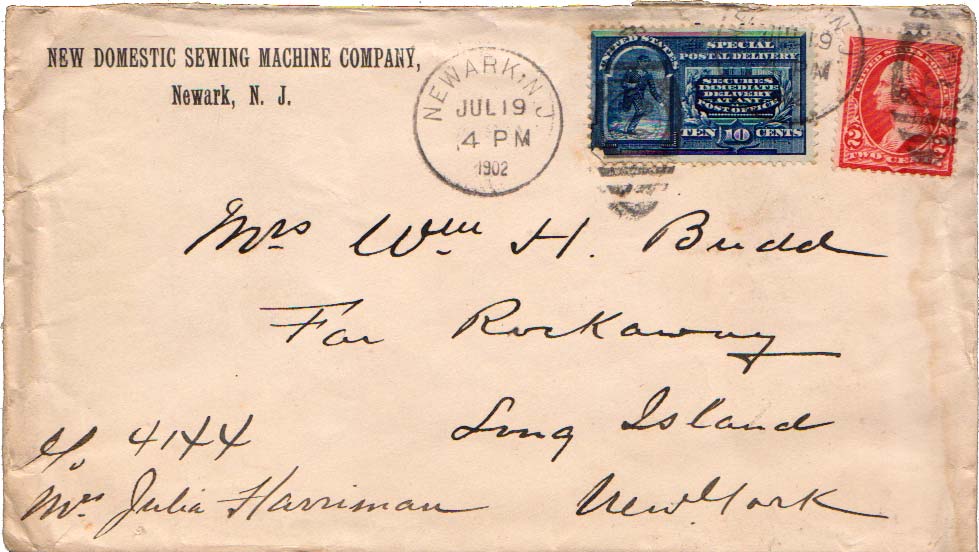 NEW DOMESTIC SEWING MACHINE COMPANY,
Newark, N. J.
NEWARK, N. J.
JUL 19
4 PM
1902
UNITED STATES
SPECIAL
POSTAL DELIVERY
SECURES
IMMEDIATE
DELIVERY
AT ANY
POST OFFICE
TEN 10 CENTS
19
M
2 2
TWO
Mrs Wm H. Budd
Far Rockaway
Long Island
New York
c/o
4144
Mrs Julia Harriman